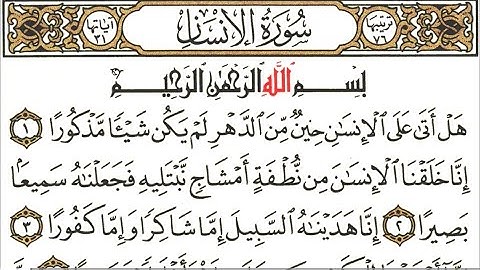 ترتيبها ٧٦ سُورَةُ الْإِنسَانِ آياتها ٣١
بِسْمِ اللَّهِ الرَّحْمَٰنِ الرَّحِيمِ
هَلْ أَتَىٰ عَلَى الْإِنسَٰنِ حِينٌ مِّنَ الدَّهْرِ لَمْ يَكُن شَيْـًٔا مَّذْكُورًا ١
إِنَّا خَلَقْنَا الْإِنسَٰنَ مِن نُّطْفَةٍ أَمْشَاجٍ نَّبْتَلِيهِ فَجَعَلْنَٰهُ سَمِيعًۢا
بَصِيرًا ٢ إِنَّا هَدَيْنَٰهُ السَّبِيلَ إِمَّا شَاكِرًا وَإِمَّا كَفُورًا ٣